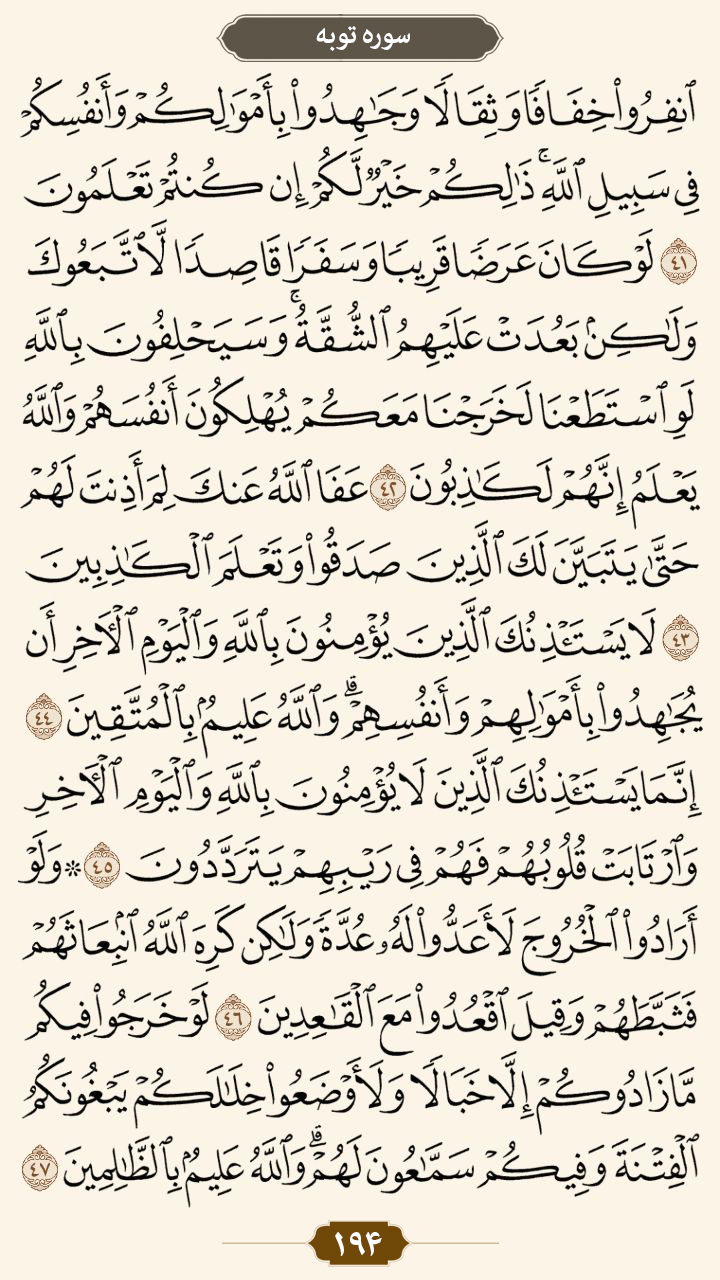 سوره توبه
ٱنفِرُوا۟ خِفَافًا وَثِقَالًا وَجَٰهِدُوا۟ بِأَمْوَٰلِكُمْ وَأَنفُسِكُمْ
فِى سَبِيلِ ٱللَّهِ ۚ ذَٰلِكُمْ خَيْرٌ لَّكُمْ إِن كُنتُمْ تَعْلَمُونَ
٤١ لَوْ كَانَ عَرَضًا قَرِيبًا وَسَفَرًا قَاصِدًا لَّٱتَّبَعُوكَ
وَلَٰكِنۢ بَعُدَتْ عَلَيْهِمُ ٱلشُّقَّةُ ۚ وَسَيَحْلِفُونَ بِٱللَّهِ
لَوِ ٱسْتَطَعْنَا لَخَرَجْنَا مَعَكُمْ يُهْلِكُونَ أَنفُسَهُمْ وَٱللَّهُ
يَعْلَمُ إِنَّهُمْ لَكَٰذِبُونَ ٤٢ عَفَا ٱللَّهُ عَنكَ لِمَ أَذِنتَ لَهُمْ
حَتَّىٰ يَتَبَيَّنَ لَكَ ٱلَّذِينَ صَدَقُوا۟ وَتَعْلَمَ ٱلْكَٰذِبِينَ
٤٣ لَا يَسْتَـْٔذِنُكَ ٱلَّذِينَ يُؤْمِنُونَ بِٱللَّهِ وَٱلْيَوْمِ ٱلْـَٔاخِرِ أَن
يُجَٰهِدُوا۟ بِأَمْوَٰلِهِمْ وَأَنفُسِهِمْ ۗ وَٱللَّهُ عَلِيمٌۢ بِٱلْمُتَّقِينَ ٤٤
إِنَّمَا يَسْتَـْٔذِنُكَ ٱلَّذِينَ لَا يُؤْمِنُونَ بِٱللَّهِ وَٱلْيَوْمِ ٱلْـَٔاخِرِ
وَٱرْتَابَتْ قُلُوبُهُمْ فَهُمْ فِى رَيْبِهِمْ يَتَرَدَّدُونَ ٤٥ * وَلَوْ
أَرَادُوا۟ ٱلْخُرُوجَ لَأَعَدُّوا۟ لَهُۥ عُدَّةً وَلَٰكِن كَرِهَ ٱللَّهُ ٱنۢبِعَاثَهُمْ
فَثَبَّطَهُمْ وَقِيلَ ٱقْعُدُوا۟ مَعَ ٱلْقَٰعِدِينَ ٤٦ لَوْ خَرَجُوا۟ فِيكُم
مَّا زَادُوكُمْ إِلَّا خَبَالًا وَلَأَوْضَعُوا۟ خِلَٰلَكُمْ يَبْغُونَكُمُ
ٱلْفِتْنَةَ وَفِيكُمْ سَمَّٰعُونَ لَهُمْ ۗ وَٱللَّهُ عَلِيمٌۢ بِٱلظَّٰلِمِينَ ٤٧
۱۹۴